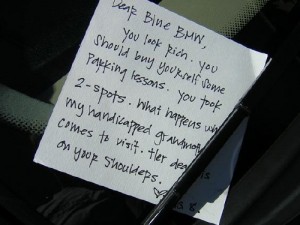 Dear Blue BMW,
you look rich. you
should buy yourself some
parking lessons. you took
2-spots. what happens
my handicapped
comes to visit. Her
on your shoulders.